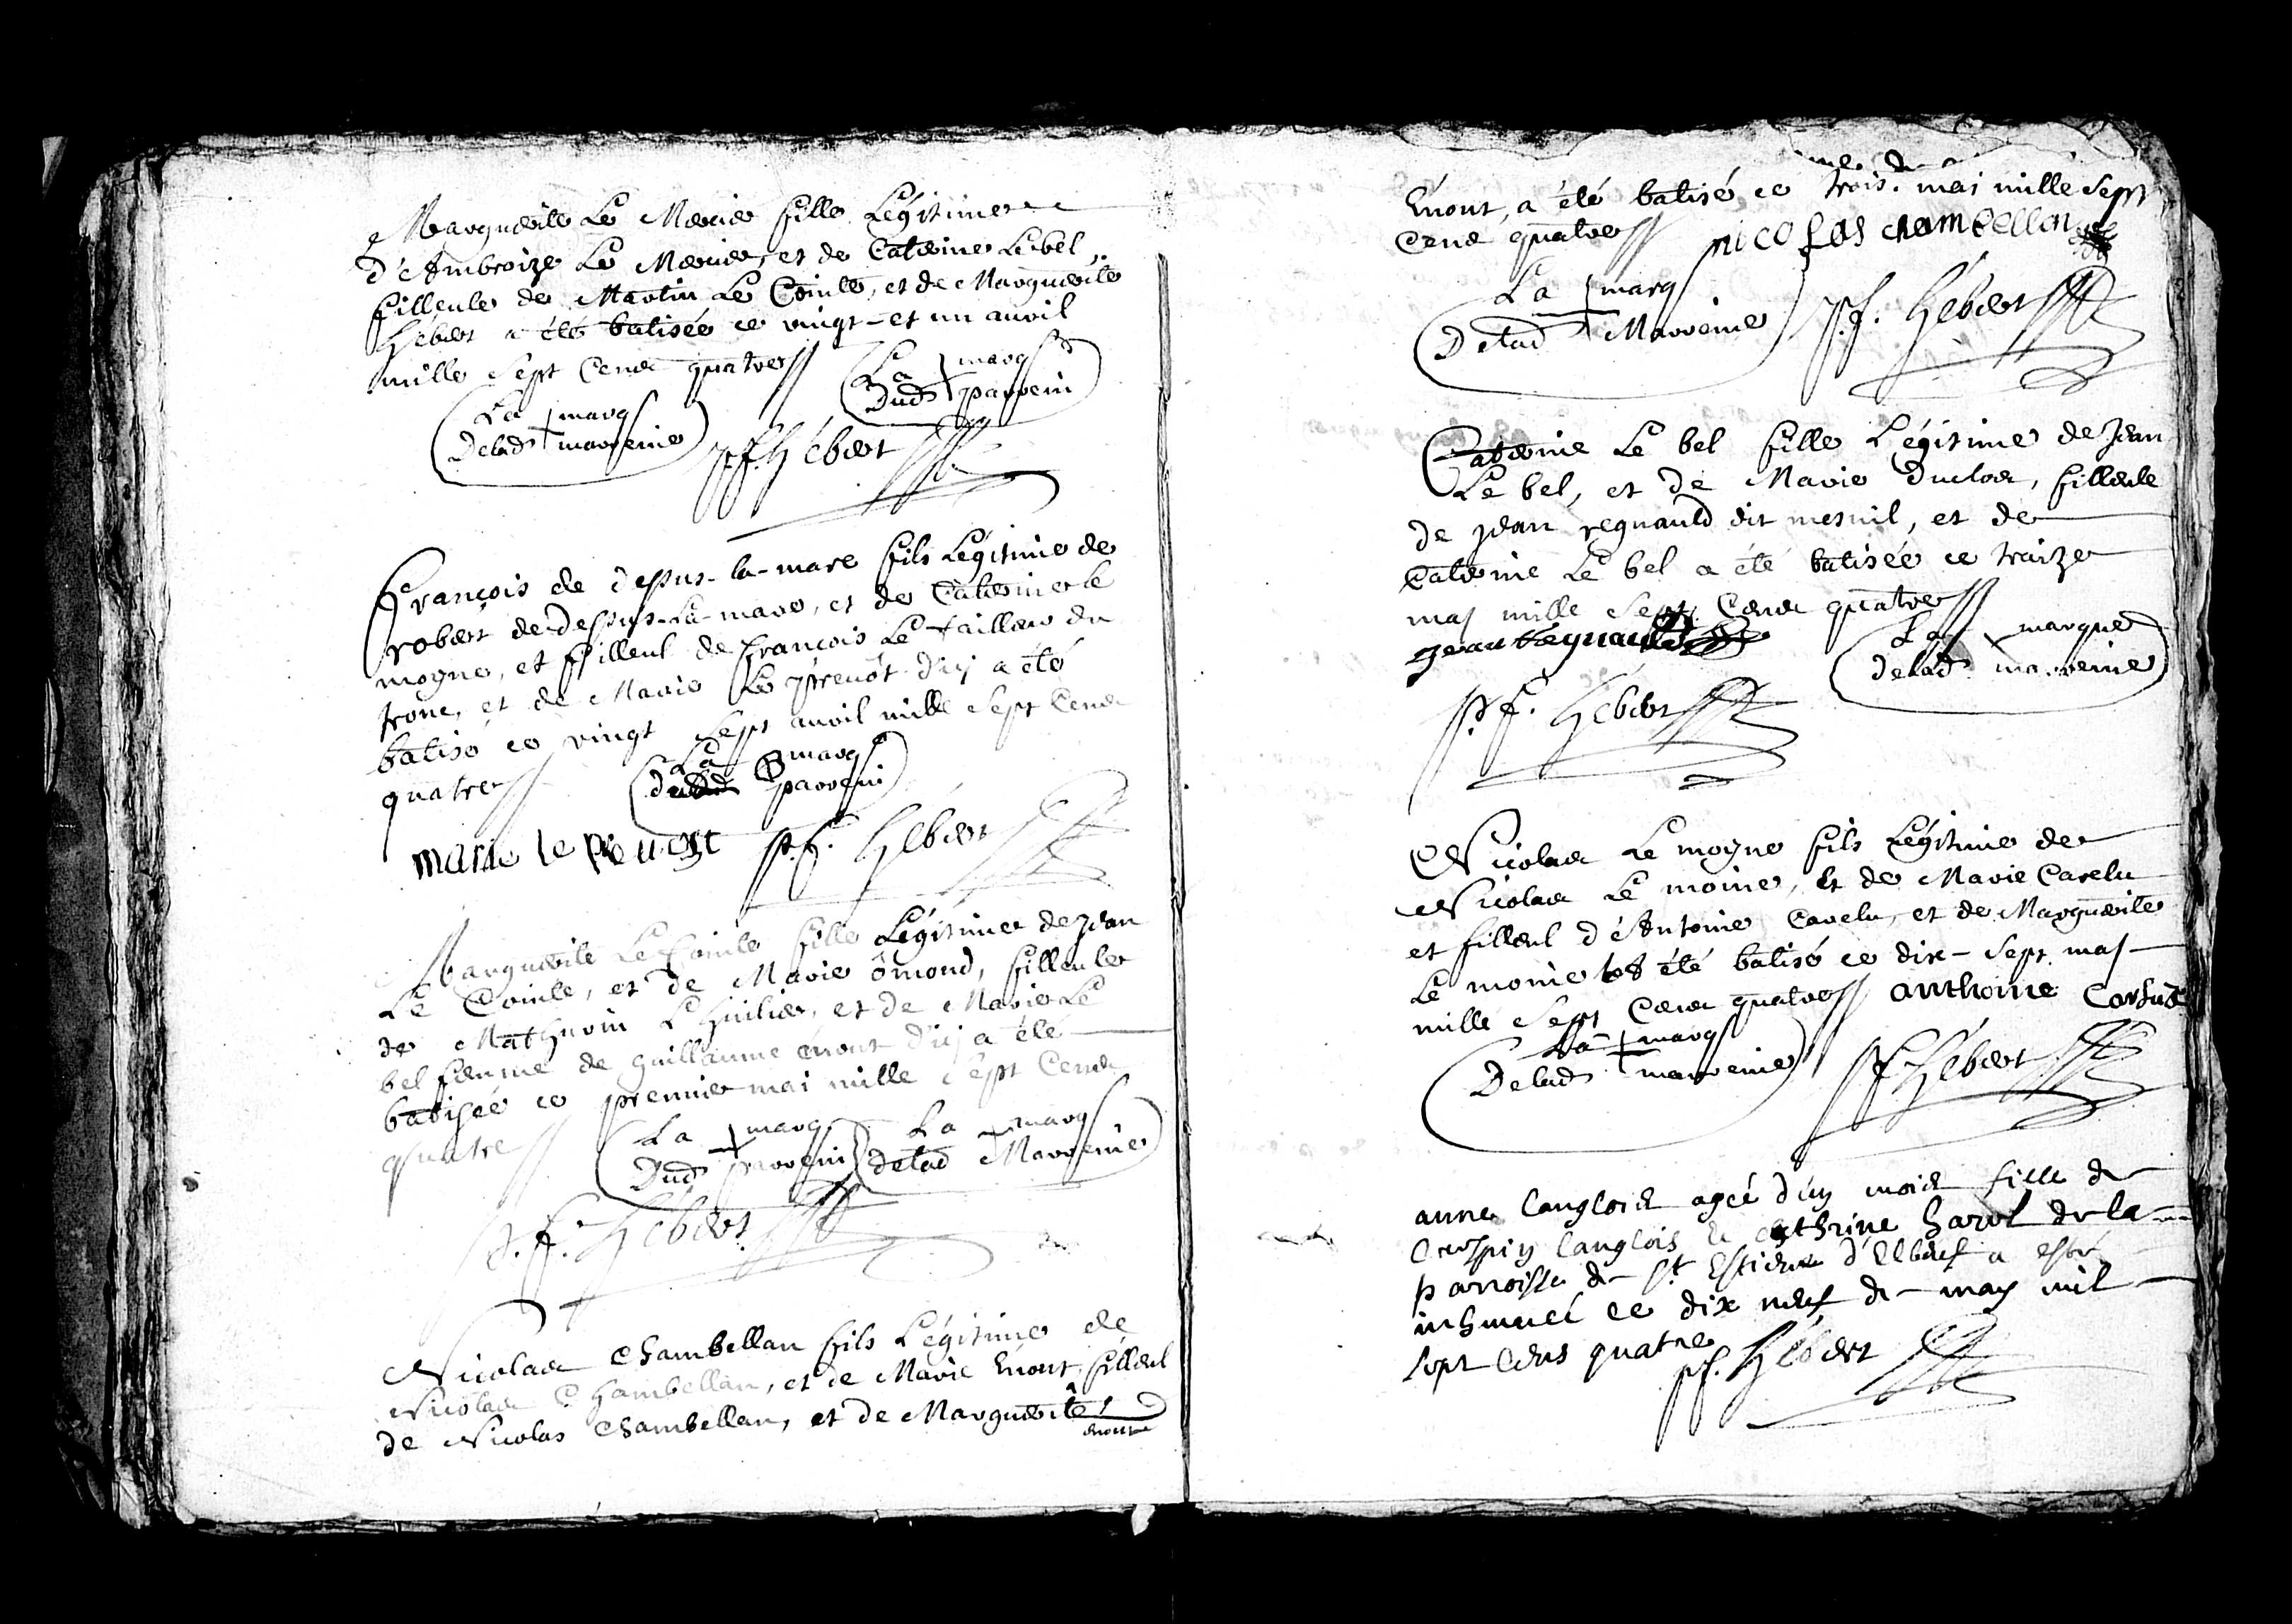 Marguerite Le Mercier fille Légitime
d'Ambroize Le Mercier, et de Caterine Le bel
filleule de Martin Le Cointe, et de Marguerite
Hébert a été batisée ce vingt-et un avril
mille sept Cens quatre
La marq
Dud parrein
La marq
Delad marreine
p.f. Hébert
François de dessus-la-mare fils Légitime de
robert de Dessus-la-mare, et de Caterine le
mogne, et filleul de François Le tailleur du
tronc, et de Marie Le prevôt d'icy a été
batisé ce vingt Sept avril mille Sept Cens
quatre
La marq
dud parrein
marie le prevost
p.f. Hébert
Marguerite Le Cointe fille Légitime de Jean
Le Cointe, et de Marie ômond, filleule
de Mathurin L'huilier, et de Marie Le
bel femme de guillaume énout d'icy a été
batisée ce premier mai mille sept Cens
quatre
La marq
Dud parrein
La marq
delad Marreine
p.f. Hébert
Nicolas Chambellan fils Légitime de
Nicolas Chambellan, et de Marie Enout, filleul
de Nicolas Chambellan, et de Marguerite
énout
Enout, a été batisé ce trois. mai mille Sept
Cens quatre
nicolas chambellan
La marq
Delad Marreine
p.f. Hébert
Caterine Le bel fille Légitime de Jean
Le bel, et de Marie Duclos, filleule
de Jean regnauld dit mesnil, et de
Caterine Le bel a été batisée ce traize
maj mille Sept Cens quatre
Jean Regnauld
La marque
delad marreine
p.f. Hébert
Nicolas Le mogne fils Légitime de
Nicolas Le moine, et de Marie Carelu
et filleul d'Antoine Carelu, et de Marguerite
Le moine a été batisé ce dix-sept maj
mille Sept Cens quatre
anthoine
La marq
Delad marreine
p.f. Hébert
anne langlois ageé d'un mois fille de
Crespin langlois et Cathrine harel de la
parroisse de St Estienne d'Elbeuf a esté
inhumeé ce dix neuf de may mil
sept Cens quatre
p.f. Hébert